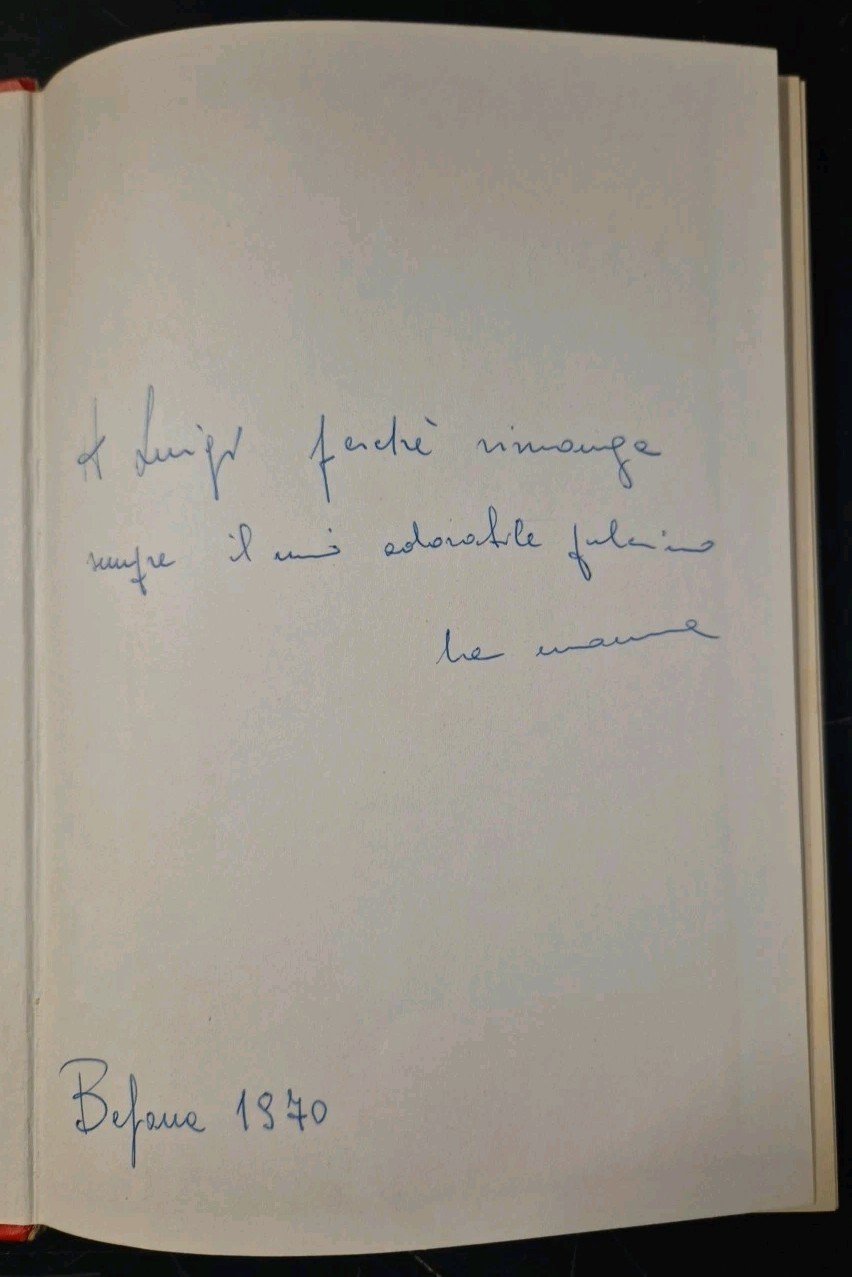 A Luigi perchè rimanga
sempre il mio adorabile pulcino
la mamma
Befana 1970